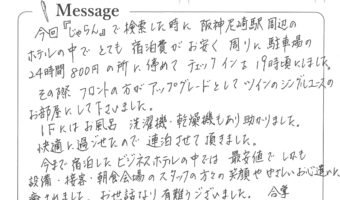 Message
今回『じゃらん』で検索した時に 阪神尼崎駅周辺の
ホテルの中でとても 宿泊費がお安く 周りに駐車場の
24時間800円の所に停めてチェックインは19時頃にしました。
その際 フロントの方がアップグレードとしてツインのシングルユースの
お部屋にして下さいました。
1Fにはお風呂 洗濯機・乾燥機もあり助かりました。
快適に過ごせたので 連泊させて頂きました。
今まで宿泊したビジネスホテルの中では 最安値で しかも
設備・接客・朝食会場のスタッフの方々の笑顔ややさしいお心遣いに
されました。 お世話になり有難うございました。